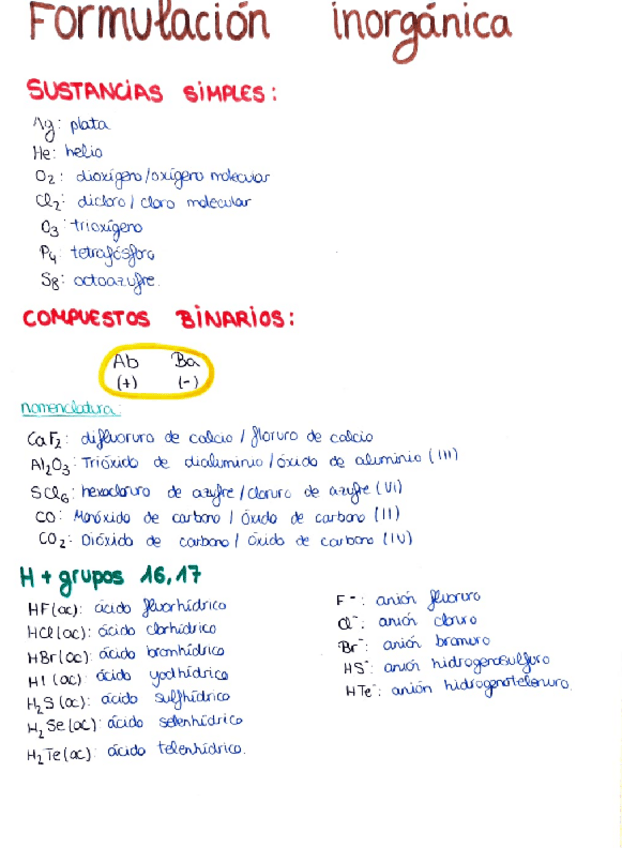 Formulación inorgánica
SUSTANCIAS SIMPLES:
Ag: plata
He: helio
O2: dioxígeno/oxígeno molecular
Cl2: dicloro / cloro molecular
O3: trioxígeno
P4: tetrafósforo
S8: octoazufre.
COMPUESTOS BINARIOS:
Ab Ba
(+) (-)
nomenclatura:
CaF2: difluoruro de calcio / floruro de calcio
Al2O3: Trióxido de dialuminio / óxido de aluminio (III)
SCl6: hexacloruro de azufre / cloruro de azufre (VI)
CO: Monóxido de carbono / óxido de carbono (II)
CO2: Dióxido de carbono / óxido de carbono (IV)
H + grupos 16,17
HF(ac): ácido fluorhídrico
HCl(ac): ácido clorhídrico
HBr(ac): ácido bromhídrico
HI (ac): ácido yodhídrico
H2S (ac): ácido sulfhídrico
H2Se(ac): ácido selenhídrico
H2Te(ac): ácido telenhídrico.
F-: anión fluoruro
Cl-: anión cloruro
Br-: anión bromuro
HS-: anión hidrogenosulfuro
HTe-: anión hidrogenoteleruro.